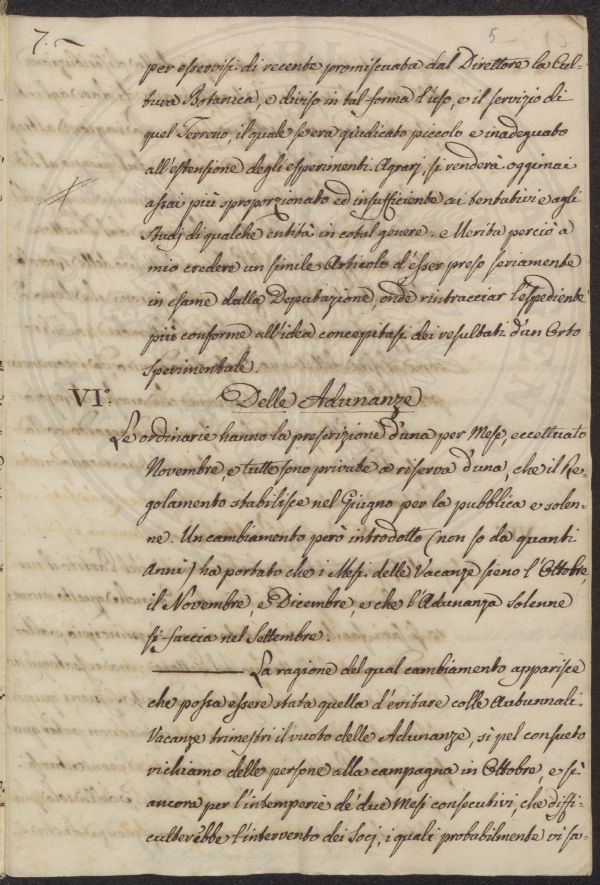 7.
5
per esservisi di recente promiscuata dal Direttore la Col-
tura Botanica, e diviso in tal forma l'uso, e il servizio di
quel Terreno, il quale se era giudicato piccolo e inadeguato
all'estensione degli esperimenti Agrarj, si renderà oggimai
assai più sproporzionato ed insufficiente ai tentativi e agli
studj di qualche entità in cotal genere. e Merita perciò a
mio credere un simile Articolo d'esser preso seriamente
in esame dalla Deputazione, onde rintracciar l'espediente
più conforme all'idea concepitasi dei resultati d'un Orto
sperimentale.
VI°. Delle Adunanze
Le ordinarie hanno la prescrizione d'una per Mese, eccettuato
Novembre, e tutte sono private a riserva d'una, che il Re-
golamento stabilisce nel Giugno per la pubblica e solen-
ne. Un cambiamento però introdotto (non so da quanti
Anni) ha portato che i Mesi delle Vacanze sieno l'Ottobre,
il Novembre, e Dicembre, e che l'Adunanza solenne
si faccia nel Settembre.
La ragione del qual cambiamento apparisce
che possa essere stata quella d'evitare colle Autunnali.
Vacanze trimestri il vuoto delle Adunanze, sì pel consueto
richiamo delle persone alla campagna in Ottobre, e sì
ancora per l'intemperie de' due Mesi consecutivi, che diffi-
culterebbe l'intervento dei Socj, i quali probabilmente vi sa-